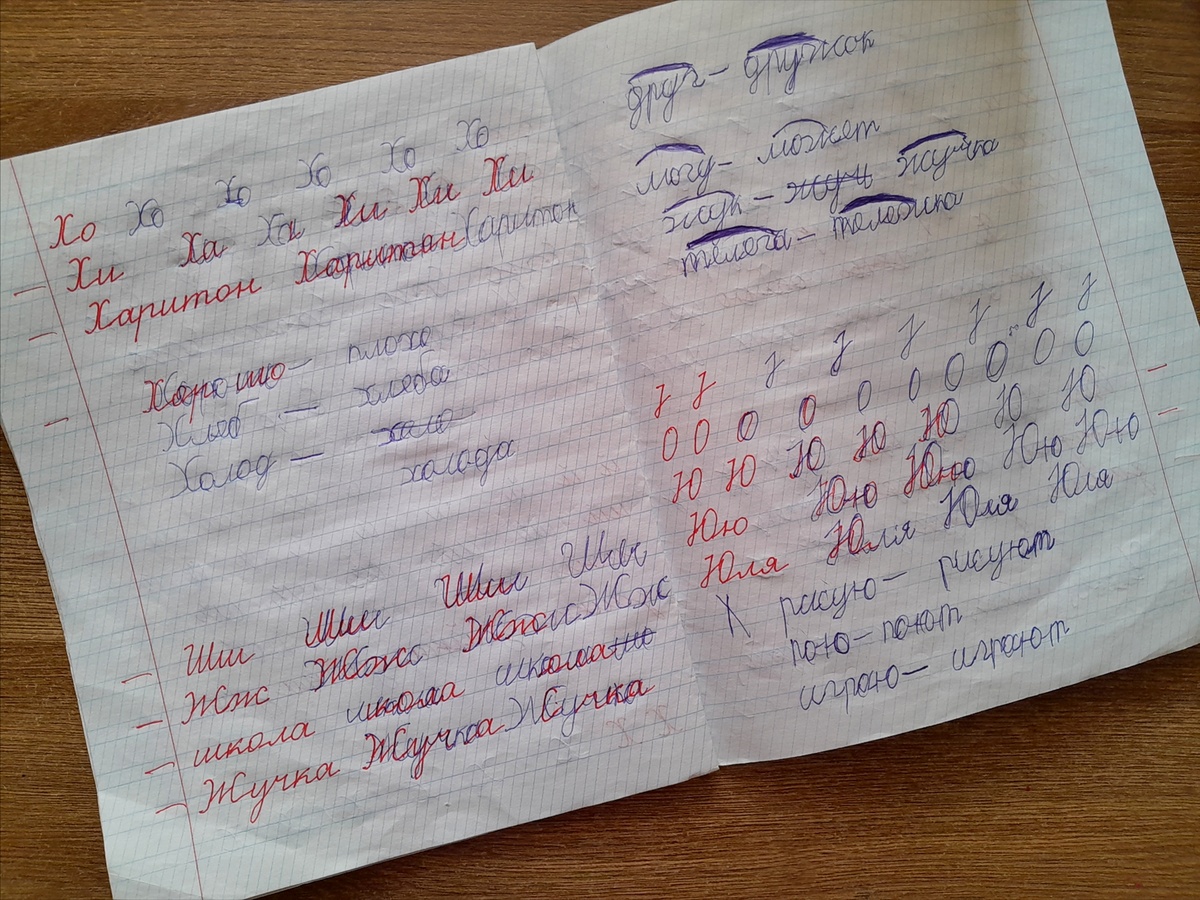 Хо Хо Хо Хо Хо Хо
Хи Ха Ха Хи Хи Хи
Харитон Харитон Харитон
Хорошо — плохо
Хлеб — хлеба
Холод — хало
холода
Шш Шш Шш Шш
Жж Жж Жж Жж
школа школа школа шо
Жучка Жучка Жучка
друг — дружок
могу — может
жук — жуч жучка
телега — тележка
О О О О О О О О О
Ю Ю Ю Ю Ю Ю Ю
Юю Юю Юю Юю Юю
Юля Юля Юля Юля
рисую — рисуют
пою — поют
играю — играют